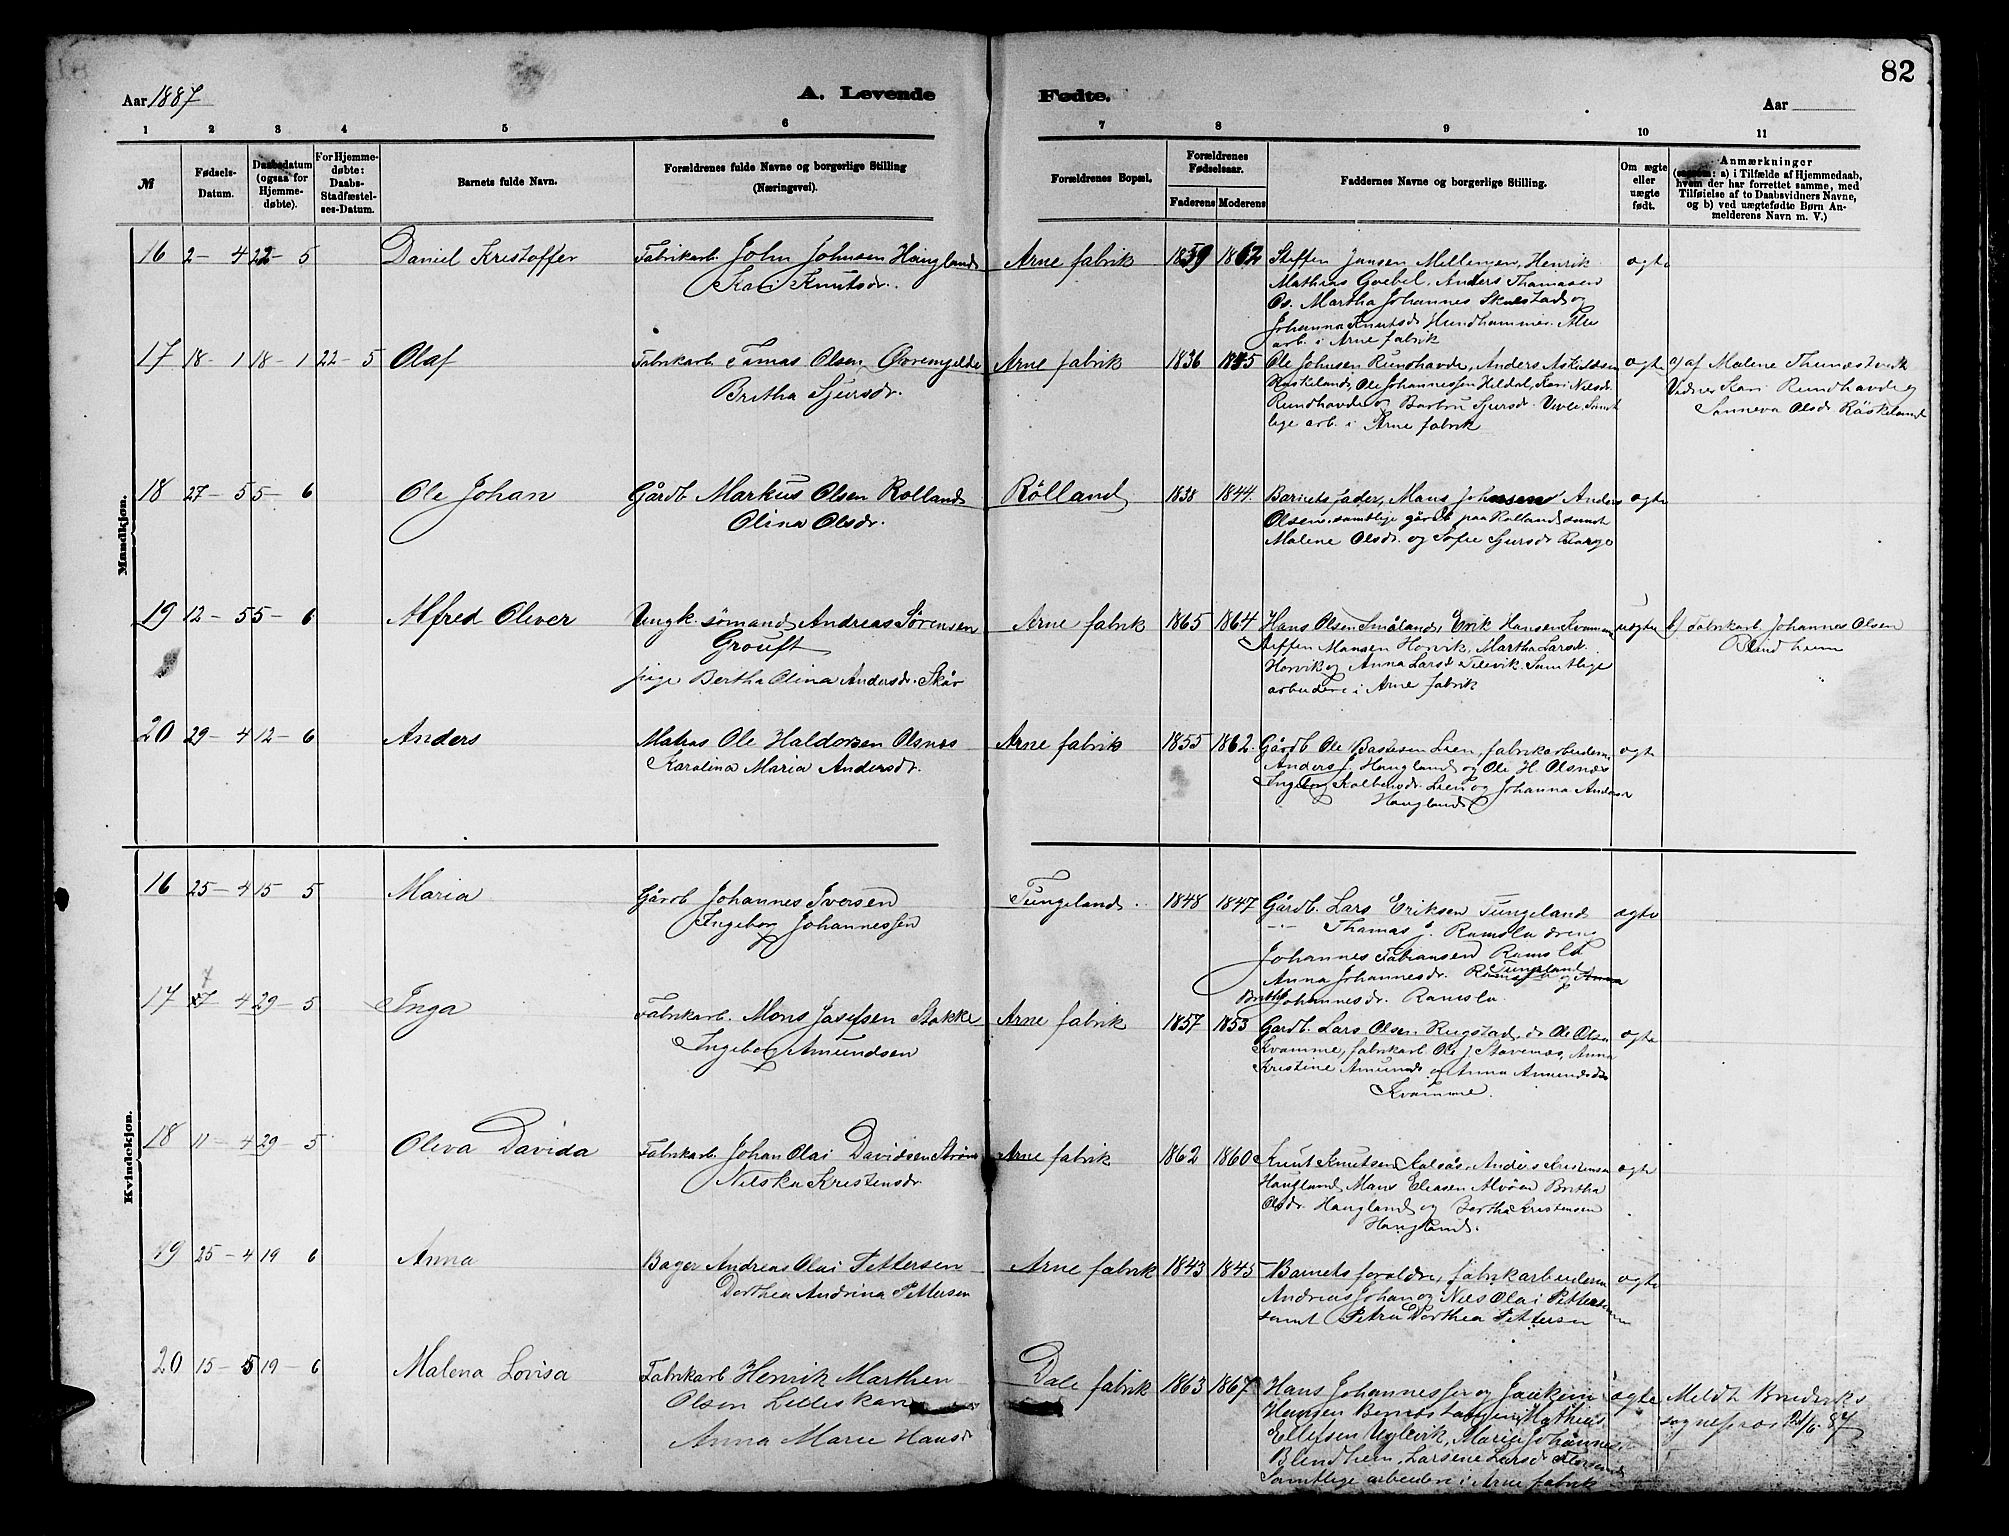 82
Aar 1887
A. Levende
Fødte.
Aar
1 2 3 4 5 6 7 8 9 10 11
№
Fødsels-
Datum.
Daabsdatum
(ogsaa for
Hjemme-
døbte).
For Hjemme-
døbte:
Daabs-
Stadfæstel-
ses-Datum.
Barnets fulde Navn.
Forældrenes fulde Navne og borgerlige Stilling
(Næringsvei).
Forældrenes Bopæl.
Forældrenes
Fødselsaar.
Faderens Moderens
Faddernes Navne og borgerlige Stilling.
Om ægte
eller
uægte
født.
Anmærkninger
(saasom: a) i Tilfælde af Hjemmedaab,
hvem der har forrettet samme, med
Tilføielse af to Daabsvidners Navne,
og b) ved uægtefødte Børn An-
melderens Navn m. V.)
Mandkjøn.
16 2-4 22-5 Daniel Kristoffer Fabrikarb. John Johnsen Haugland Arne fabrik 1859 1862 Steffen Jansen Mellingen, Henrik ægte
Kari Knutsdr. Mathias Goebel, Anders Thomasen
Os. Martha Johannes og
Johanna Knutsdr Hundhammer. Alle
arb. i Arne fabrik
17 18-1 18-1 22-5 Olaf Fabrikarb. Tomas Olsen Arne fabrik 1836 1845 Ole Johnsen Rundhovde, Anders Askildsen ægte a) af Malene
Britha Sjursdr. Ole Johannessen Heldal, Kari Nilsdr. Vidner Kari Rundhovde og
Rundhovde og Barbru Sjursdr. Samt Sonneva Olsdr Räskeland
lige arb. i Arne fabrik
18 27-5 5-6 Ole Johan Gårdb Markus Olsen Rolland Rölland 1838 1844. Barnets fader, Mons Johnsen Anders ægte
Olina Olsdr. Olsen samtlige gårdb paa Rolland samt
Malene Olsdr. og Sofie Sjursdr Borge
19 12-5 5-6 Alfred Oliver Ungk. sömand Andreas Sørensen Arne fabrik 1865 1864 Hans Olsen Småland, Erik Hansen Kvamme uægte b) Fabrikarb. Johannes Olsen
Grouft Steffen Monsen Horvik, Martha Larsdr. Blindheim
pige Bertha Olina Andersdr. Skår Horvik og Anna Larsdr Samtlige
arbeidere i Arne fabrik
20 29-4 12-6 Anders Matros Ole Haldorsen Olsnes Arne fabrik 1855 1862. Gårdb Ole Bastesen Lien, fabrikarbeiderne ægte
Karolina Maria Andersdr. Anders J. Haugland og Ole H. Olsnes
Ingeborg Kolbensdr. Lien og Johanna Andersdr
Haugland
Kvindekjøn.
16 25-4 15 5 Maria Gårdb Johannes Iversen Tungeland. 1848 1847 Gårdb. Lars Eriksen Tungeland ægte
Ingeborg Johannessen -"- Thomas J. Ramslu dreng
Johannes Fabiansen Ramslu
Anna Johannesdr. Tungeland og
Britha Johannesdr. Ramslu.
17 7-4 29-5 Inga Fabrikarb. Mons Josefsen Stokke Arne fabrik 1857 1853 Gårdb. Lars Olsen Rugstad, do Ole Olsen ægte
Ingeborg Amundsen Kvamme, fabrikarb. Ole J Stavenes, Anna
Kristine Amunds og Anna Amundsdr
Kvamme.
18 11-4 29-5 Oleva Davida Fabrikarb. Johan Olai Davidsen Strøm Arne fabrik 1862 1860 Knut Knutsen Kalsås, Anders Kristensen ægte
Nilska Kristensdr. Haugland, Mons Eliasen Alvöen Britha
Olsdr. Haugland og Bertha Kristensen
Haugland.
19 25-4 19 6 Anna Bager Andreas Olai Pettersen Arne fabrik 1843 1845 Barnets foreldre, fabrikarbeiderne ægte
Dorthea Andrina Pettersen Andreas Johan og Nils Olai Pettersen
samt Petra Dorthea Pettersen
20 15-5 19-6 Malena Lovisa Fabrikarb Henrik Marthen Dale fabrik 1863 1867 Hans Johannessen og Joakim ægte Meldt Bruviks
Olsen Lilleskare Hansen Mathias sognepræst 21/6.87
Anna Marie Hansdr Ellefsen Uglevik, Marie Johannes
Blindheim, Larsene Larsdr
Samtlige arbeidere i Arne fabrik